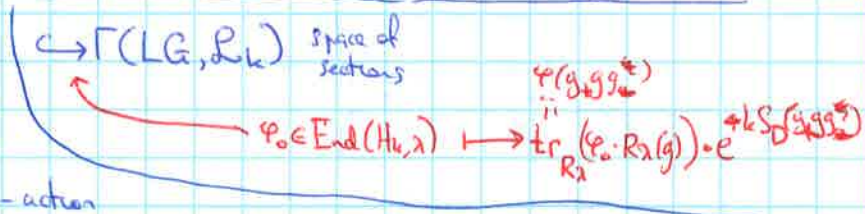 ↪ Γ(LG, ℒ_k) space of
sections
φ(g₊gg₊*)
φ₀ ∈ End(H_{k,λ}) ↦ tr_{R_λ}(φ₀·R_λ(g))·e^{+kS_D(g₊gg₊*)}
- action